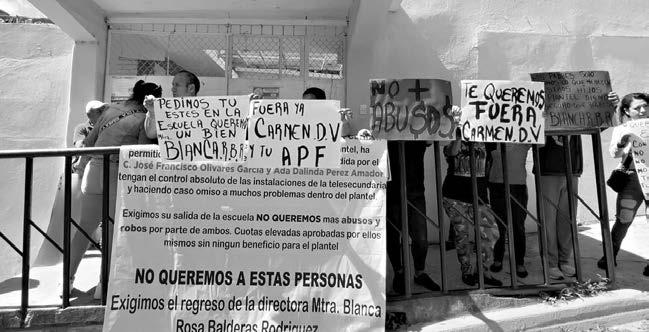 PEDIMOS TU
ESTES EN LA
ESCUELA QUERAMOS
UN BIEN
BLANCA.R.B.R
FUERA YA
CARMEN.D.V
Y TU APF
NO +
ABUSOS
TE QUEREMOS
FUERA
CARMEN.D.V
PADRES SOLO
HIJOS
BLANCA.R.B.R
permitido
por el
C. José Francisco Olivares García y Ada Dalinda Perez Amador
tengan el control absoluto de las instalaciones de la telesecundaria
y haciendo caso omiso a muchos problemas dentro del plantel.
Exigimos su salida de la escuela NO QUEREMOS mas abusos y
robos por parte de ambos. Cuotas elevadas aprobadas por ellos
mismos sin ningun beneficio para el plantel
NO QUEREMOS A ESTAS PERSONAS
Exigimos el regreso de la directora Mtra. Blanca
Rosa Balderas Rodriguez